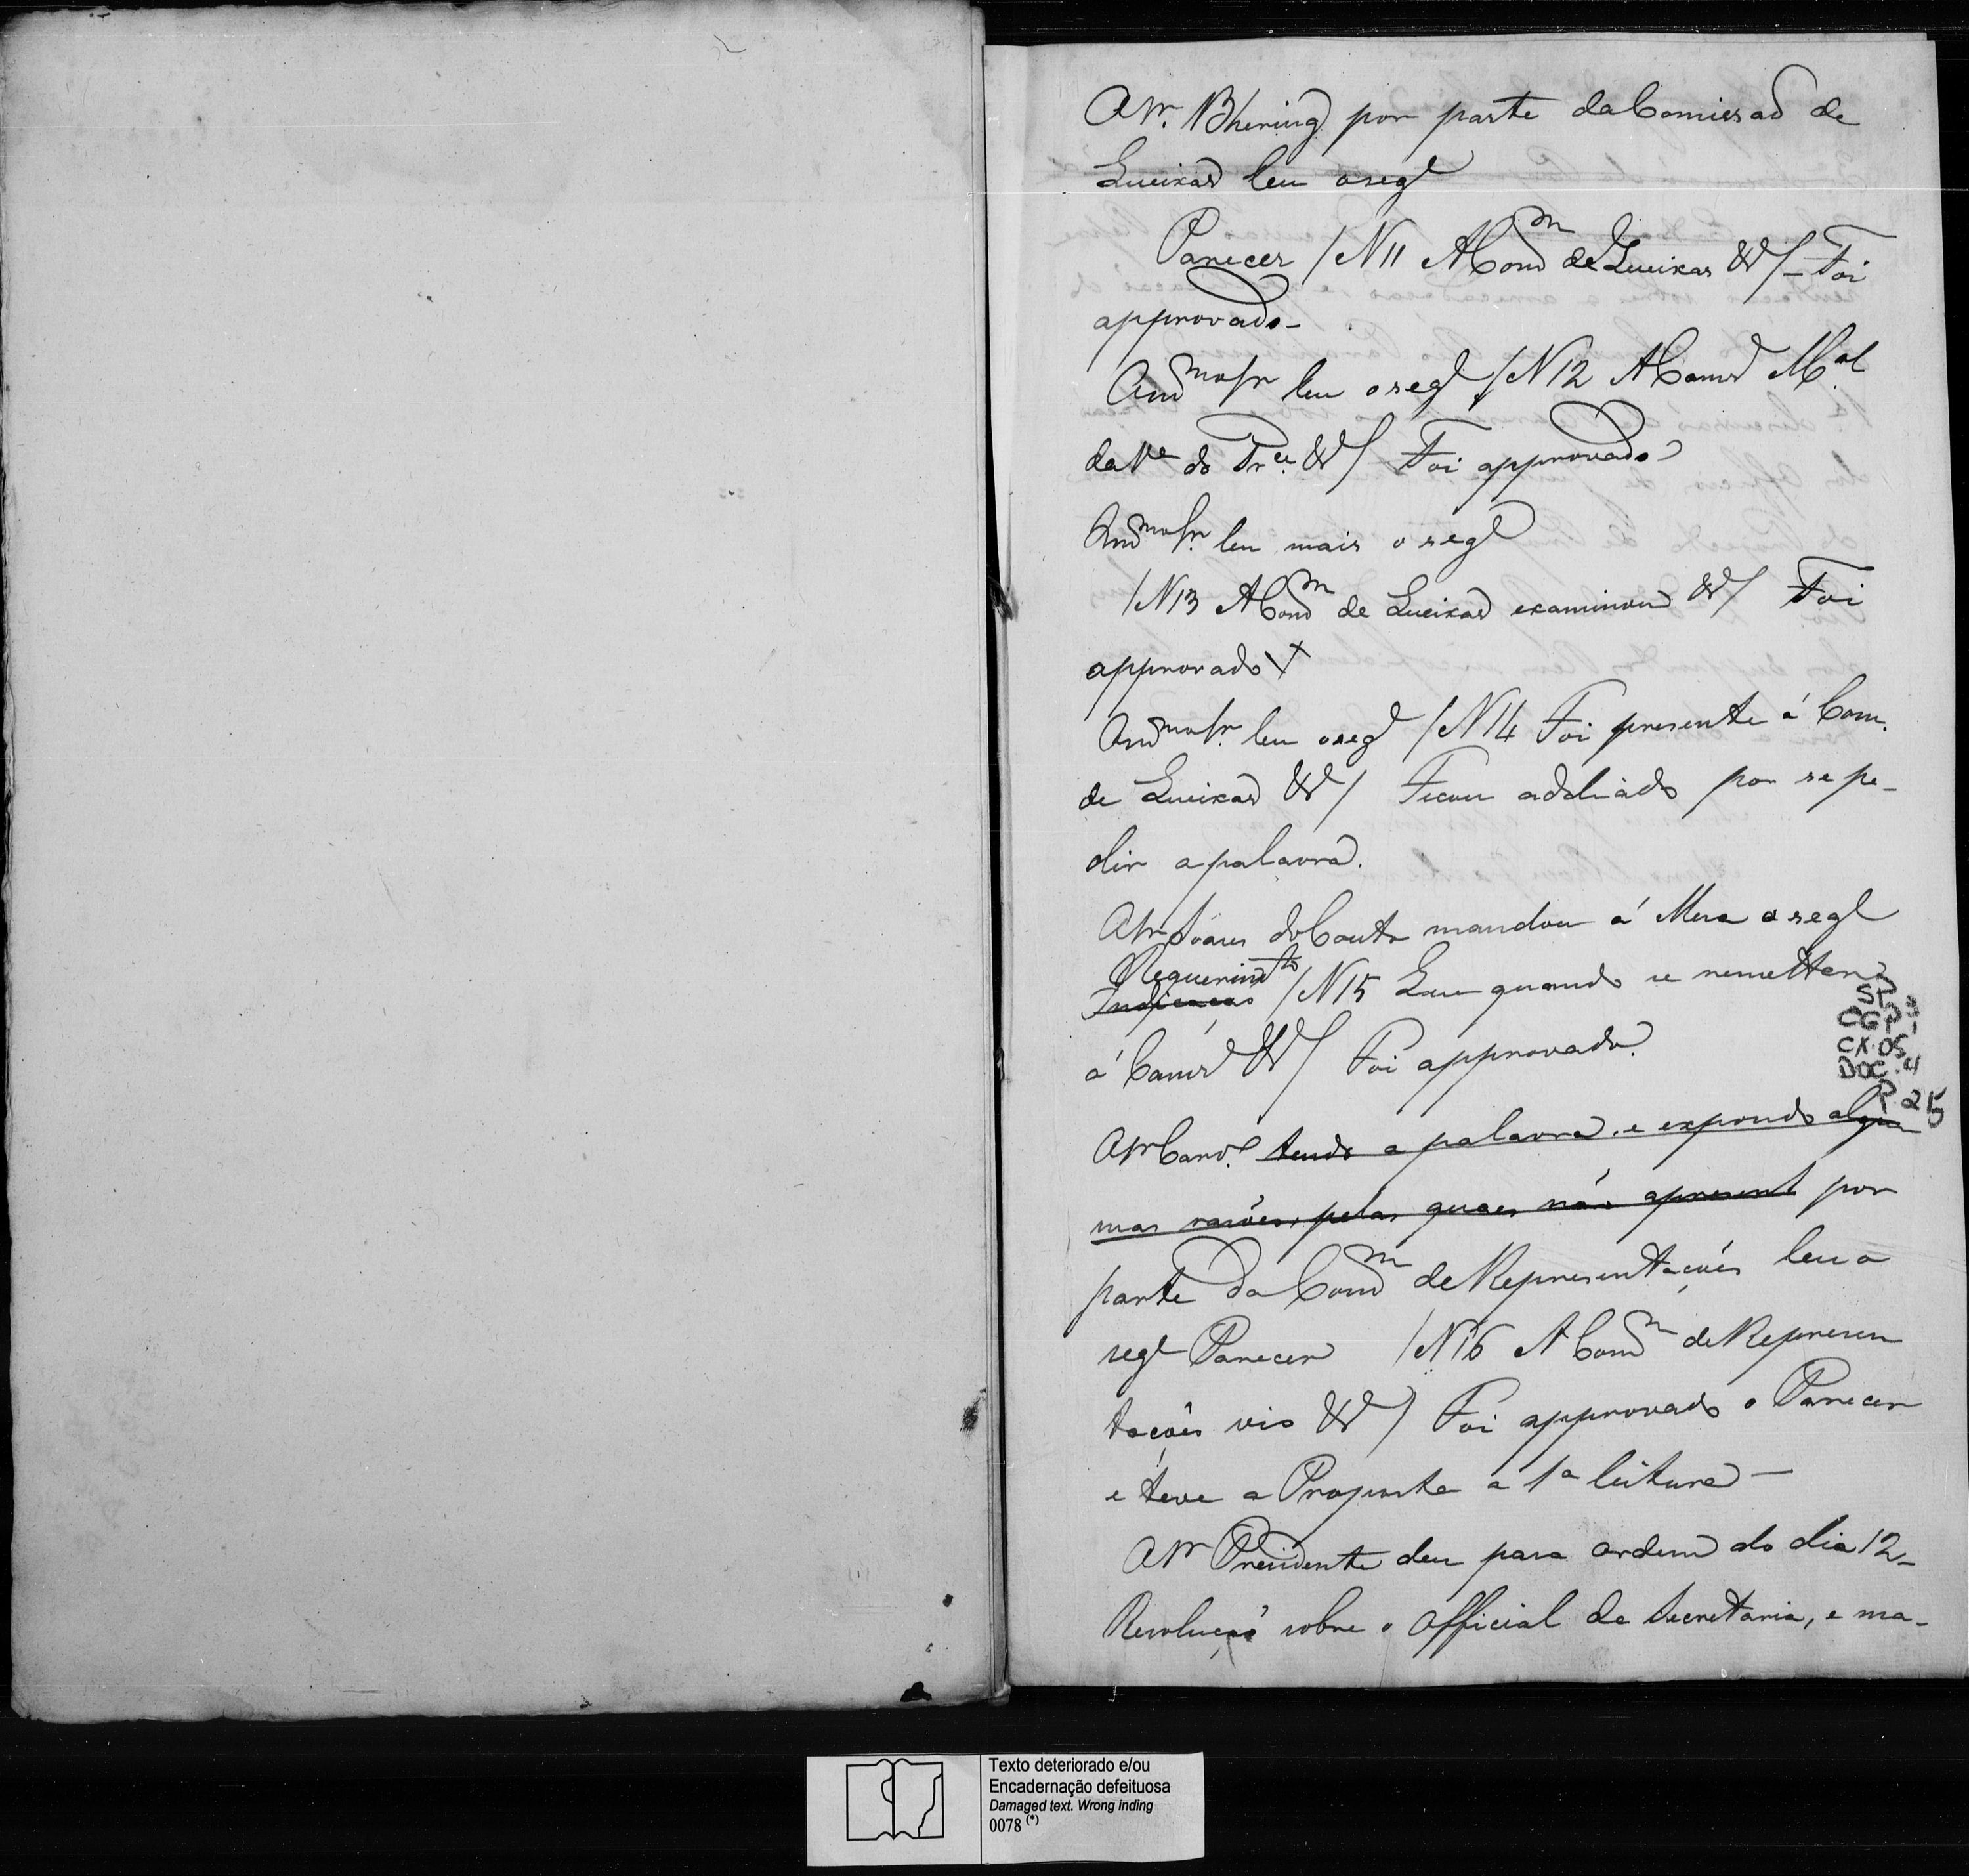 O Sr. Bhering por parte da Comissaõ de
Queixas leu o seg.e
Parecer / N 11 A Comm de Queixas &/ - Foi
approvado -
O m.mo Sr leu o seg.e / N 12 A Camr.a M.al
da V.a do Pr.ce &/ Foi approvado
O m.mo Sr. leu mais o seg.e
/ N 13 A Comm de Queixas examinou &/ Foi
approvado
O m.mo Sr. leu o seg.e / N 14 Foi presente á Com.
de Queixas &/ Ficou addiado por se pe-
dir a palavra.
O Sr Soares do Couto mandou á Mesa o seg.e
Requerim.to
Indicacaõ / N 15 Que quando se remetter
á Camr.a &/ Foi approvado.
SP
CGP-1
CX. 05
DOC. 4
P. 25
O Sr Carv.o tendo a palavra e expondo algu
mas rasões, pelas quaes não apresent por
parte da Comm de Representações leu o
seg.e Parecer / N 16 A Comm de Represen
tações vio &/ Foi approvado o Parecer
e teve a Proposta a 1a leitura -
O Sr Presidente deu para ordem do dia 12 -
Resoluçaõ sobre o Official da Secretaria, e ma-
Texto deteriorado e/ou
Encadernação defeituosa
Damaged text. Wrong inding
0078 (*)